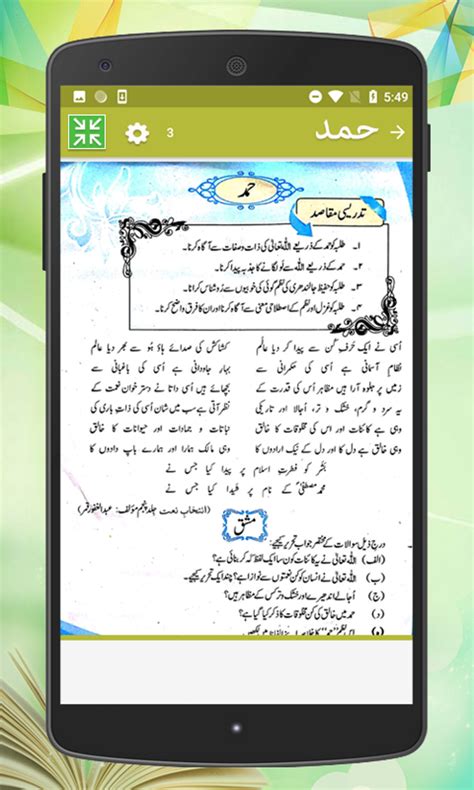 5:49
3
حمد
حمد
تدریسی مقاصد
۱۔ طلبہ کو حمد کے ذریعے اللہ تعالیٰ کی ذات و صفات سے آگاہ کرنا۔
۲۔ حمد کے ذریعے اللہ سے لَو لگانے کا جذبہ پیدا کرنا۔
۳۔ طلبہ کو حفیظ جالندھری کی نظم گوئی کی خوبیوں سے رُوشناس کرانا۔
۴۔ طلبہ کو غزل اور نظم کے اصطلاحی معنی سے آگاہ کرنا اور ان کا فرق واضح کرنا۔
اُسی نے ایک حرفِ کُن سے پیدا کر دیا عالَم
کشاکش کی صدائے ہاؤ ہُو سے بھر دیا عالم
نظامِ آسمانی ہے اُسی کی حکمرانی سے
بہارِ جاودانی ہے اُسی کی باغبانی سے
زمیں پر جلوہ آرا ہیں مظاہر اُس کی قدرت کے
بچھائے ہیں اُسی داتا نے دستر خوان نعمت کے
یہ سرد و گرم، خشک و تر، اُجالا اور تاریکی
نظر آتی ہے سب میں شان اُسی کی ذاتِ باری کی
وہی ہے کائنات اور اس کی مخلوقات کا خالق
نباتات و جمادات اور حیوانات کا خالق
وہی خالق ہے دل کا اور دل کے نیک ارادوں کا
وہی مالک ہمارا اور ہمارے باپ دادوں کا
بشر کو فطرتِ اسلام پر پیدا کیا جس نے
محمد مصطفیٰؐ کے نام پر شیدا کیا جس نے
(انتخابِ نعت جلد پنجم مؤلف: عبدالغفور قمر)
مشق
درج ذیل سوالات کے مختصر جواب تحریر کیجیے۔
(الف) اللہ تعالیٰ نے یہ کائنات کون سا ایک لفظ کہہ کر بنائی ہے؟
(ب) اللہ تعالیٰ نے انسان کو کن نعمتوں سے نوازا ہے؟ چند ایک تحریر کیجیے۔
(ج) اُجالے اندھیرے اور خشک و تر کس کے مظاہر ہیں؟
(د) حمد میں خالق کی کن مخلوقات کا ذکر کیا گیا ہے؟
اس نظم "حمد" کا خلاصہ